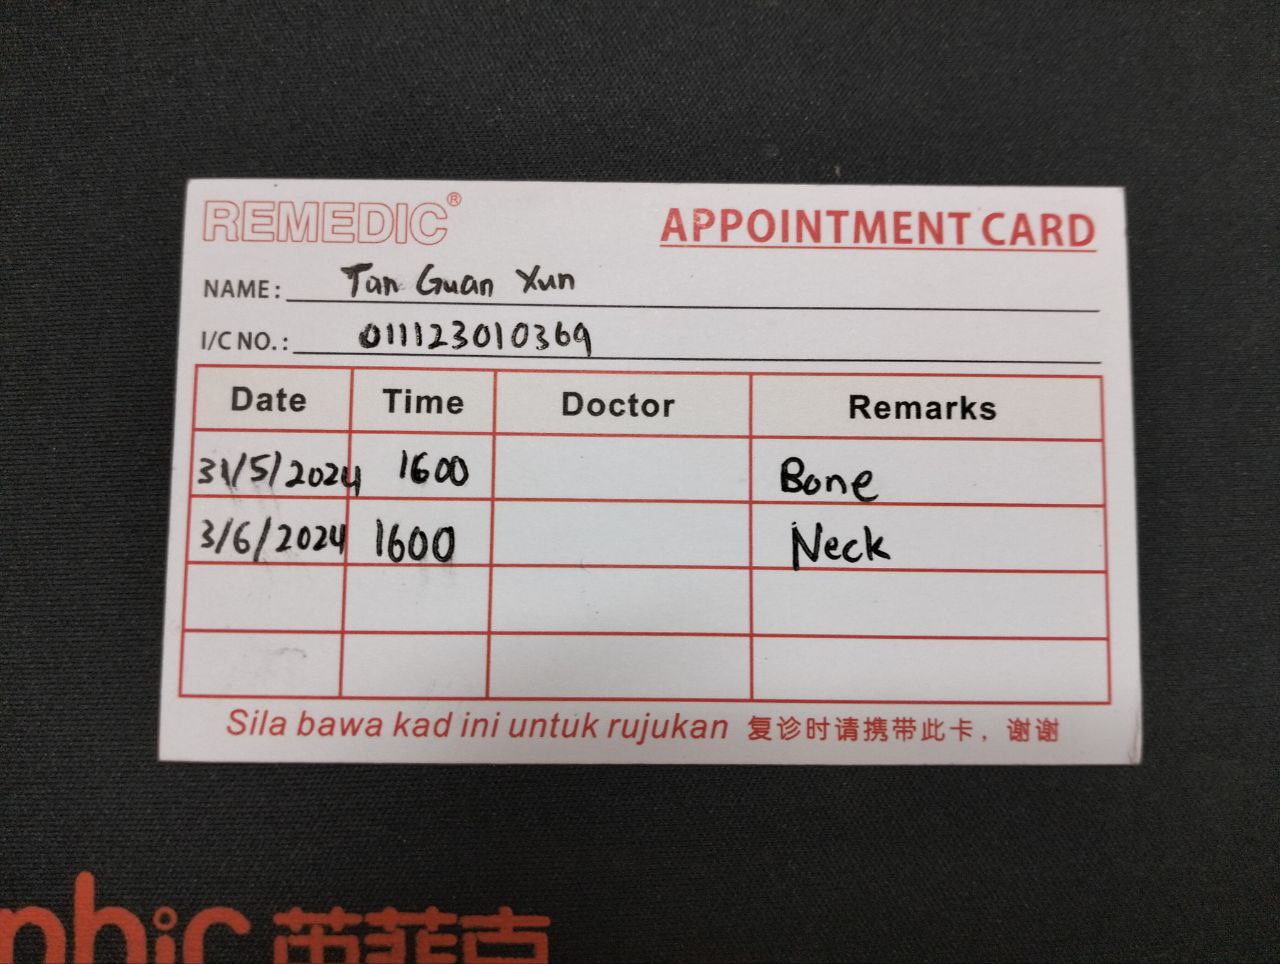 REMEDIC®
APPOINTMENT CARD
NAME: Tan Guan Xun
I/C NO.: 011123010369
Date Time Doctor Remarks
31/5/2024 1600 Bone
3/6/2024 1600 Neck
Sila bawa kad ini untuk rujukan 复诊时请携带此卡，谢谢
phic 茵菲克